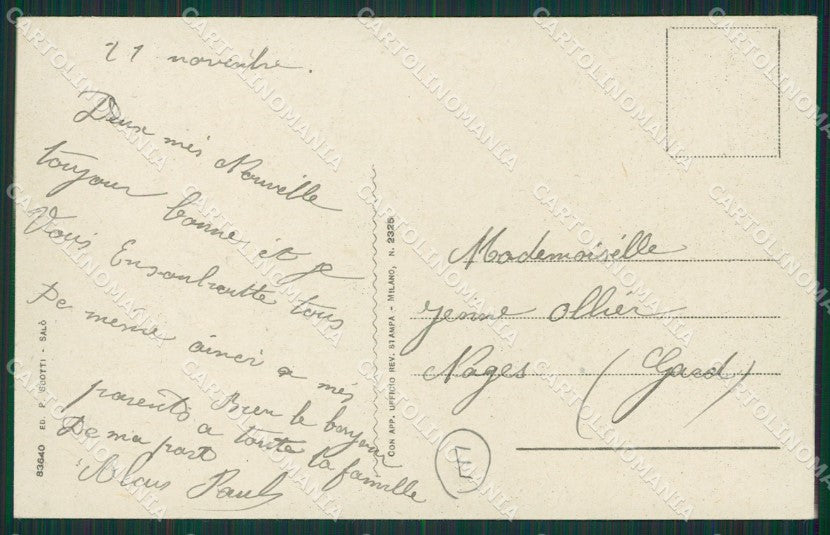 21 novembre.
Deux mes Nouvelle
toujour bonne et je
Vous Ensouhaitte tous
De meme ainci a mes
parents Bien le bonjour
De ma part a toute la famille
Paul
Mademoiselle
Jenne Ollier
Nages (Gard)
CON APP. UFFICIO REV. STAMPA - MILANO, N. 2325
83640 ED. P. SCOTTI - SALÒ
CARTOLINOMANIA